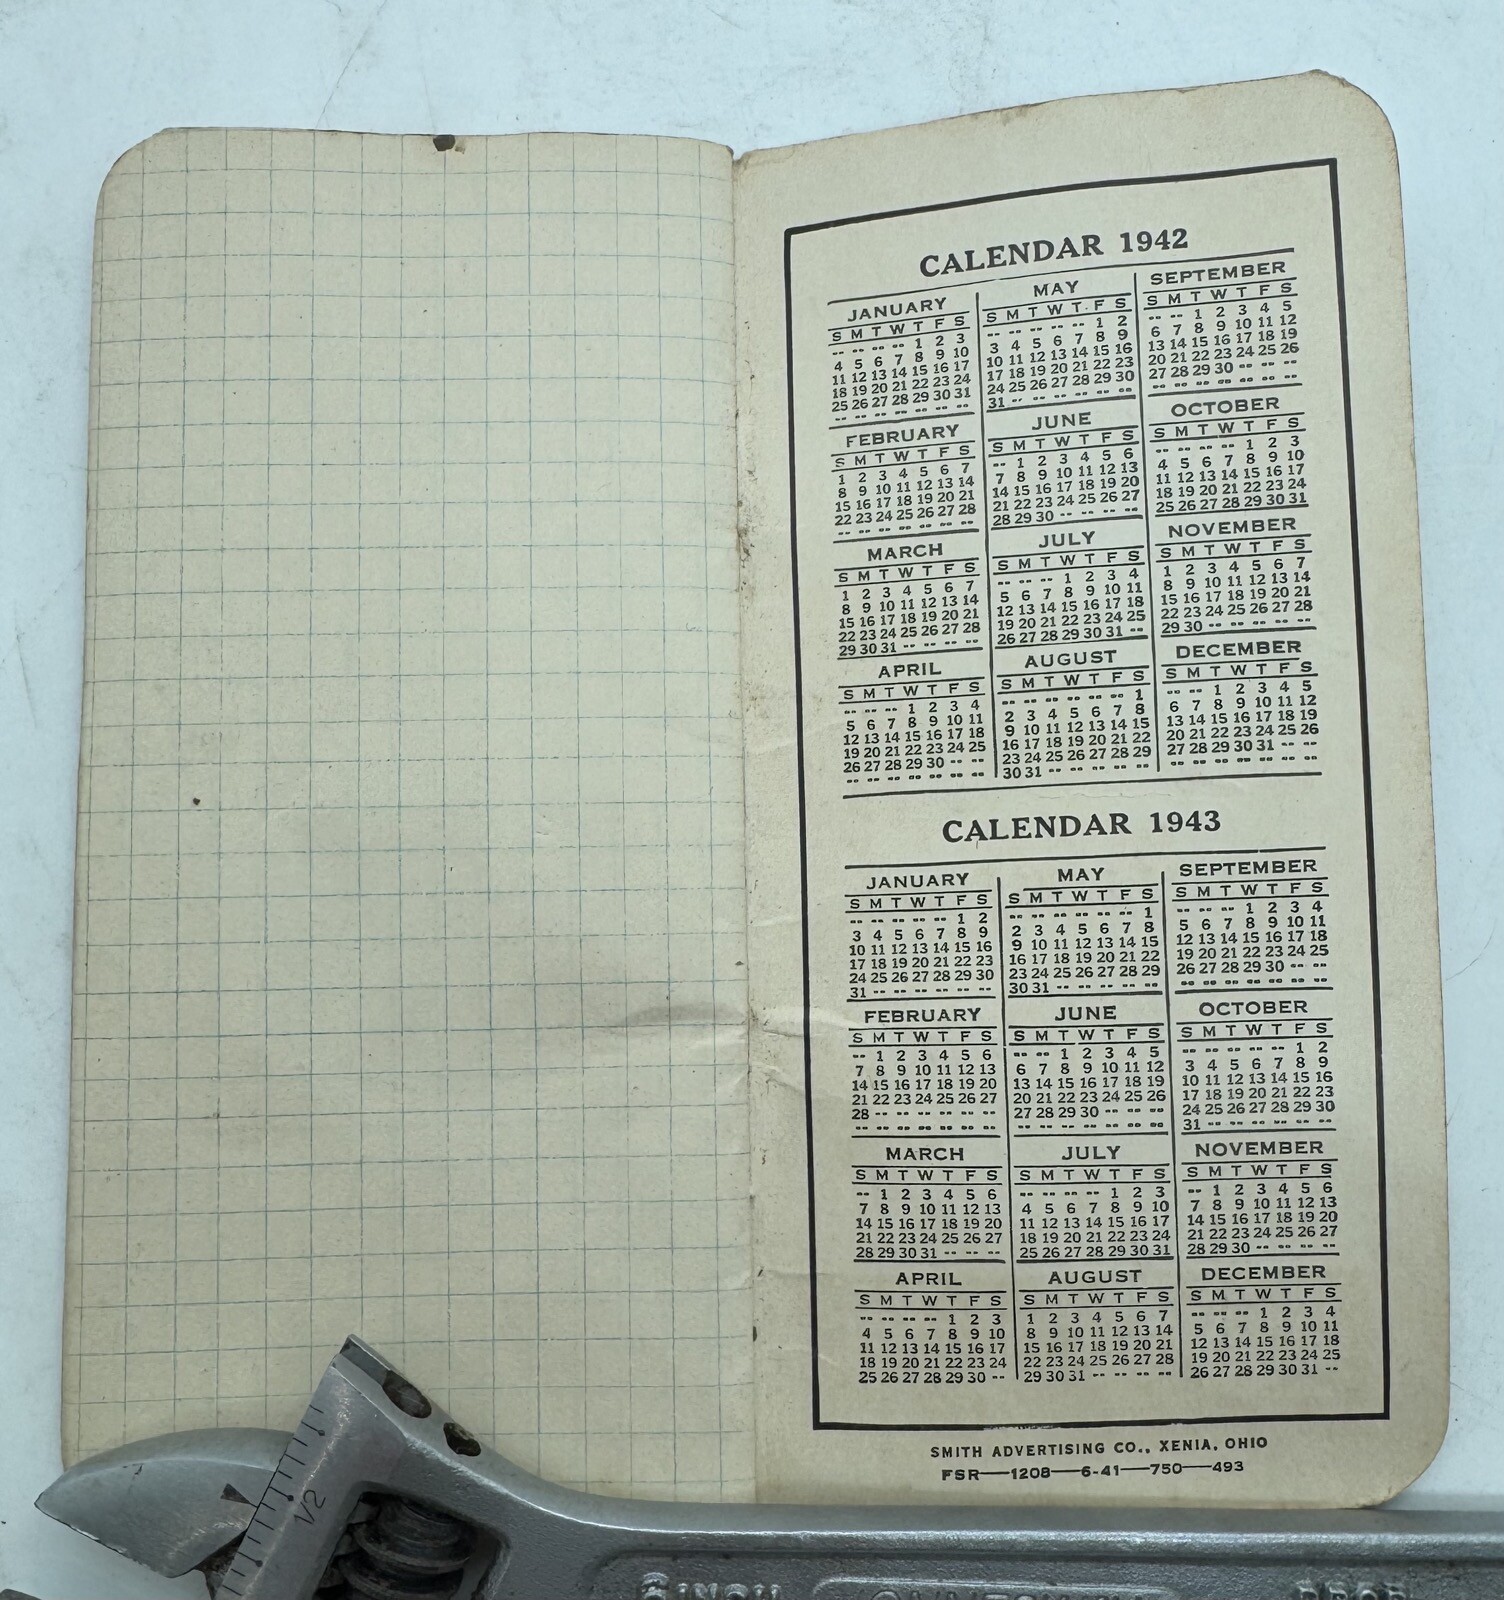 CALENDAR 1942
JANUARY
S M T W T F S
-- -- -- -- 1 2 3
4 5 6 7 8 9 10
11 12 13 14 15 16 17
18 19 20 21 22 23 24
25 26 27 28 29 30 31
-- -- -- -- -- -- --
FEBRUARY
S M T W T F S
1 2 3 4 5 6 7
8 9 10 11 12 13 14
15 16 17 18 19 20 21
22 23 24 25 26 27 28
-- -- -- -- -- -- --
MARCH
S M T W T F S
1 2 3 4 5 6 7
8 9 10 11 12 13 14
15 16 17 18 19 20 21
22 23 24 25 26 27 28
29 30 31 -- -- -- --
APRIL
S M T W T F S
-- -- -- 1 2 3 4
5 6 7 8 9 10 11
12 13 14 15 16 17 18
19 20 21 22 23 24 25
26 27 28 29 30 -- --
-- -- -- -- -- -- --
MAY
S M T W T F S
-- -- -- -- -- 1 2
3 4 5 6 7 8 9
10 11 12 13 14 15 16
17 18 19 20 21 22 23
24 25 26 27 28 29 30
31 -- -- -- -- -- --
JUNE
S M T W T F S
-- 1 2 3 4 5 6
7 8 9 10 11 12 13
14 15 16 17 18 19 20
21 22 23 24 25 26 27
28 29 30 -- -- -- --
JULY
S M T W T F S
-- -- -- 1 2 3 4
5 6 7 8 9 10 11
12 13 14 15 16 17 18
19 20 21 22 23 24 25
26 27 28 29 30 31 --
AUGUST
S M T W T F S
-- -- -- -- -- -- 1
2 3 4 5 6 7 8
9 10 11 12 13 14 15
16 17 18 19 20 21 22
23 24 25 26 27 28 29
30 31 -- -- -- -- --
SEPTEMBER
S M T W T F S
-- -- 1 2 3 4 5
6 7 8 9 10 11 12
13 14 15 16 17 18 19
20 21 22 23 24 25 26
27 28 29 30 -- -- --
-- -- -- -- -- -- --
OCTOBER
S M T W T F S
-- -- -- -- 1 2 3
4 5 6 7 8 9 10
11 12 13 14 15 16 17
18 19 20 21 22 23 24
25 26 27 28 29 30 31
NOVEMBER
S M T W T F S
1 2 3 4 5 6 7
8 9 10 11 12 13 14
15 16 17 18 19 20 21
22 23 24 25 26 27 28
29 30 -- -- -- -- --
DECEMBER
S M T W T F S
-- -- 1 2 3 4 5
6 7 8 9 10 11 12
13 14 15 16 17 18 19
20 21 22 23 24 25 26
27 28 29 30 31 -- --
-- -- -- -- -- -- --
CALENDAR 1943
JANUARY
S M T W T F S
-- -- -- -- -- 1 2
3 4 5 6 7 8 9
10 11 12 13 14 15 16
17 18 19 20 21 22 23
24 25 26 27 28 29 30
31 -- -- -- -- -- --
FEBRUARY
S M T W T F S
-- 1 2 3 4 5 6
7 8 9 10 11 12 13
14 15 16 17 18 19 20
21 22 23 24 25 26 27
28 -- -- -- -- -- --
-- -- -- -- -- -- --
MARCH
S M T W T F S
-- 1 2 3 4 5 6
7 8 9 10 11 12 13
14 15 16 17 18 19 20
21 22 23 24 25 26 27
28 29 30 31 -- -- --
APRIL
S M T W T F S
-- -- -- -- 1 2 3
4 5 6 7 8 9 10
11 12 13 14 15 16 17
18 19 20 21 22 23 24
25 26 27 28 29 30 --
MAY
S M T W T F S
-- -- -- -- -- -- 1
2 3 4 5 6 7 8
9 10 11 12 13 14 15
16 17 18 19 20 21 22
23 24 25 26 27 28 29
30 31 -- -- -- -- --
JUNE
S M T W T F S
-- -- 1 2 3 4 5
6 7 8 9 10 11 12
13 14 15 16 17 18 19
20 21 22 23 24 25 26
27 28 29 30 -- -- --
-- -- -- -- -- -- --
JULY
S M T W T F S
-- -- -- -- 1 2 3
4 5 6 7 8 9 10
11 12 13 14 15 16 17
18 19 20 21 22 23 24
25 26 27 28 29 30 31
AUGUST
S M T W T F S
1 2 3 4 5 6 7
8 9 10 11 12 13 14
15 16 17 18 19 20 21
22 23 24 25 26 27 28
29 30 31 -- -- -- --
SEPTEMBER
S M T W T F S
-- -- -- 1 2 3 4
5 6 7 8 9 10 11
12 13 14 15 16 17 18
19 20 21 22 23 24 25
26 27 28 29 30 -- --
-- -- -- -- -- -- --
OCTOBER
S M T W T F S
-- -- -- -- -- 1 2
3 4 5 6 7 8 9
10 11 12 13 14 15 16
17 18 19 20 21 22 23
24 25 26 27 28 29 30
31 -- -- -- -- -- --
NOVEMBER
S M T W T F S
-- 1 2 3 4 5 6
7 8 9 10 11 12 13
14 15 16 17 18 19 20
21 22 23 24 25 26 27
28 29 30 -- -- -- --
DECEMBER
S M T W T F S
-- -- -- 1 2 3 4
5 6 7 8 9 10 11
12 13 14 15 16 17 18
19 20 21 22 23 24 25
26 27 28 29 30 31 --
SMITH ADVERTISING CO., XENIA, OHIO
FSR—1208—6-41—750—493
1/2